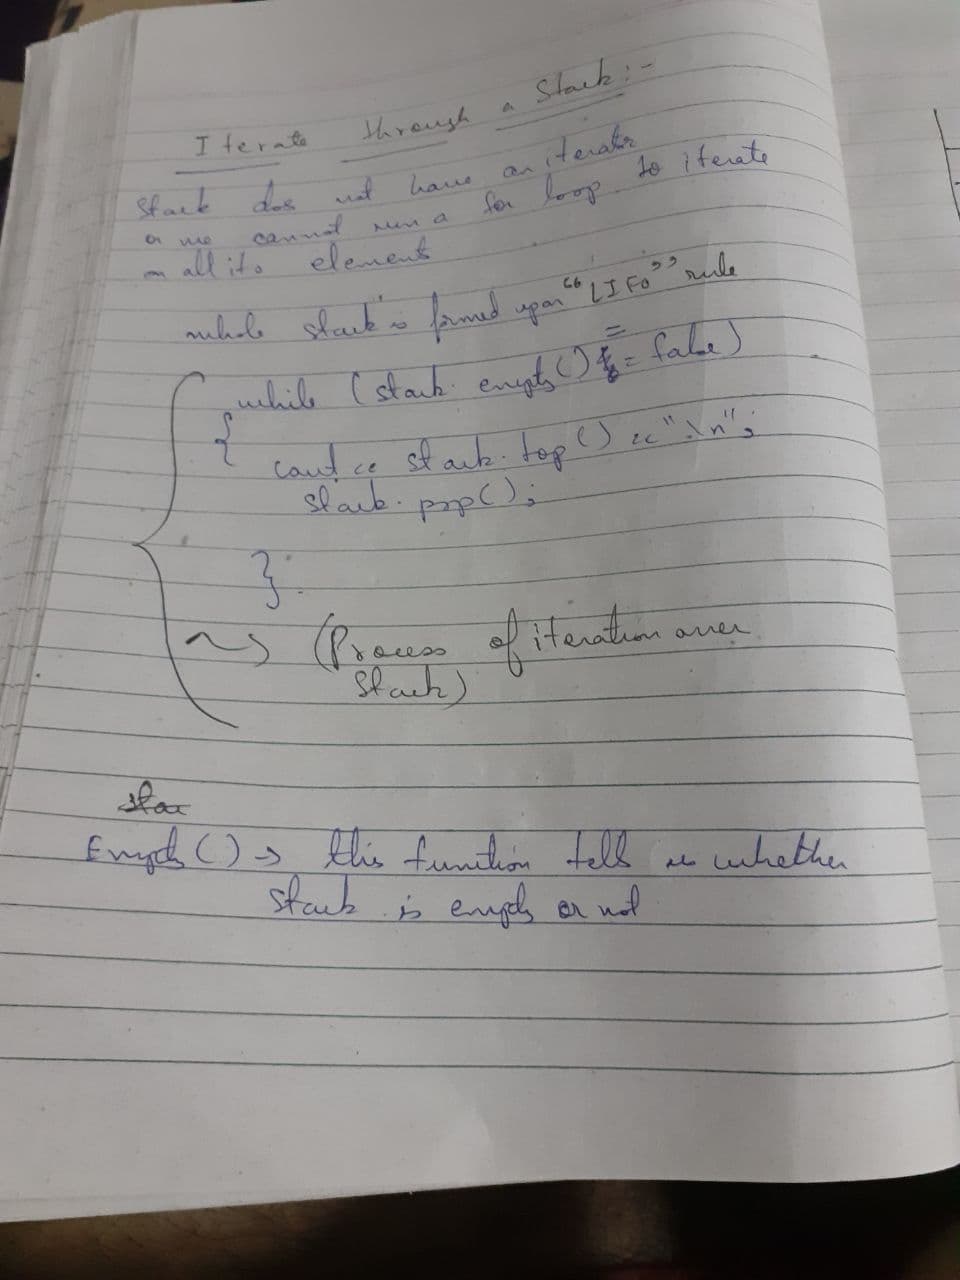 Iterate through a Stack :-
Stack does not have an iterator
or we cannot run a for loop to iterate
on all its element
whole stack is formed upon "LIFO" rule
while (stack. empty() == false)
{
cout << stack. top() << "\n";
stack. pop();
}
→ (Process of iteration over
Stack)
Empty() → this function tell us whether
stack is empty or not